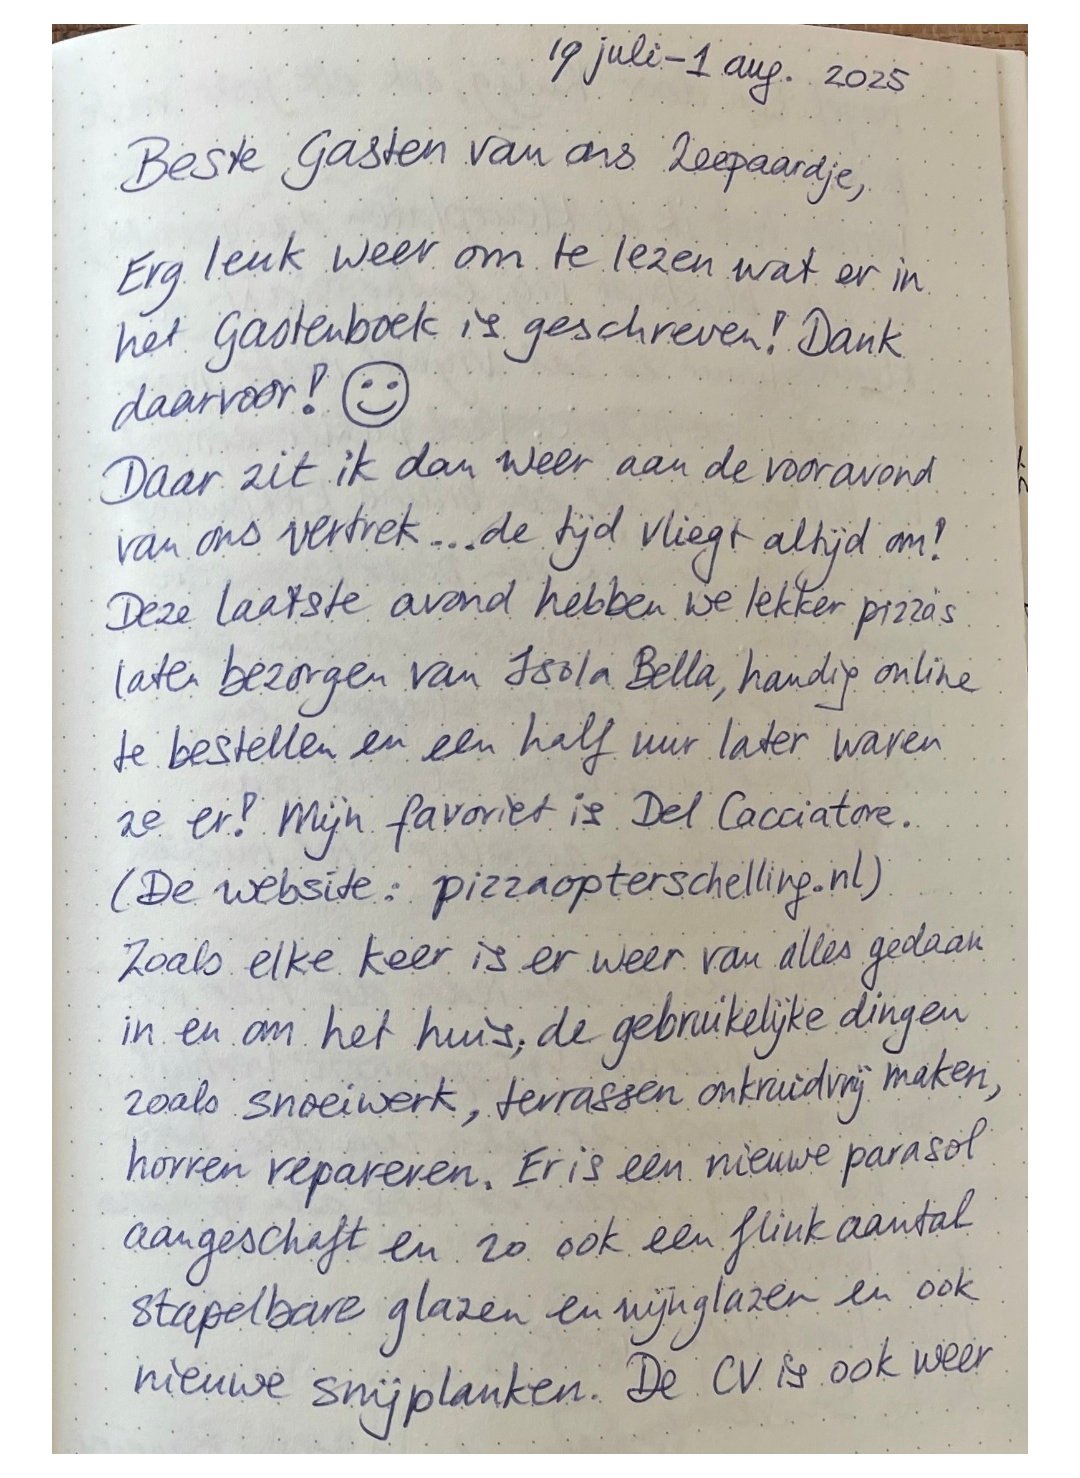 19 juli-1 aug. 2025
Beste Gasten van ons Zeepaardje,
Erg leuk weer om te lezen wat er in
het Gastenboek is geschreven! Dank
daarvoor! ☺
Daar zit ik dan weer aan de vooravond
van ons vertrek...de tijd vliegt altijd om!
Deze laatste avond hebben we lekker pizza's
laten bezorgen van Isola Bella, handig online
te bestellen en een half uur later waren
ze er! Mijn favoriet is Del Cacciatore.
(De website: pizzaopterschelling.nl)
Zoals elke keer is er weer van alles gedaan
in en om het huis; de gebruikelijke dingen
zoals snoeiwerk, terrassen onkruidvrij maken,
horren repareren. Er is een nieuwe parasol
aangeschaft en zo ook een flink aantal
stapelbare glazen en wijnglazen en ook
nieuwe snijplanken. De CV is ook weer